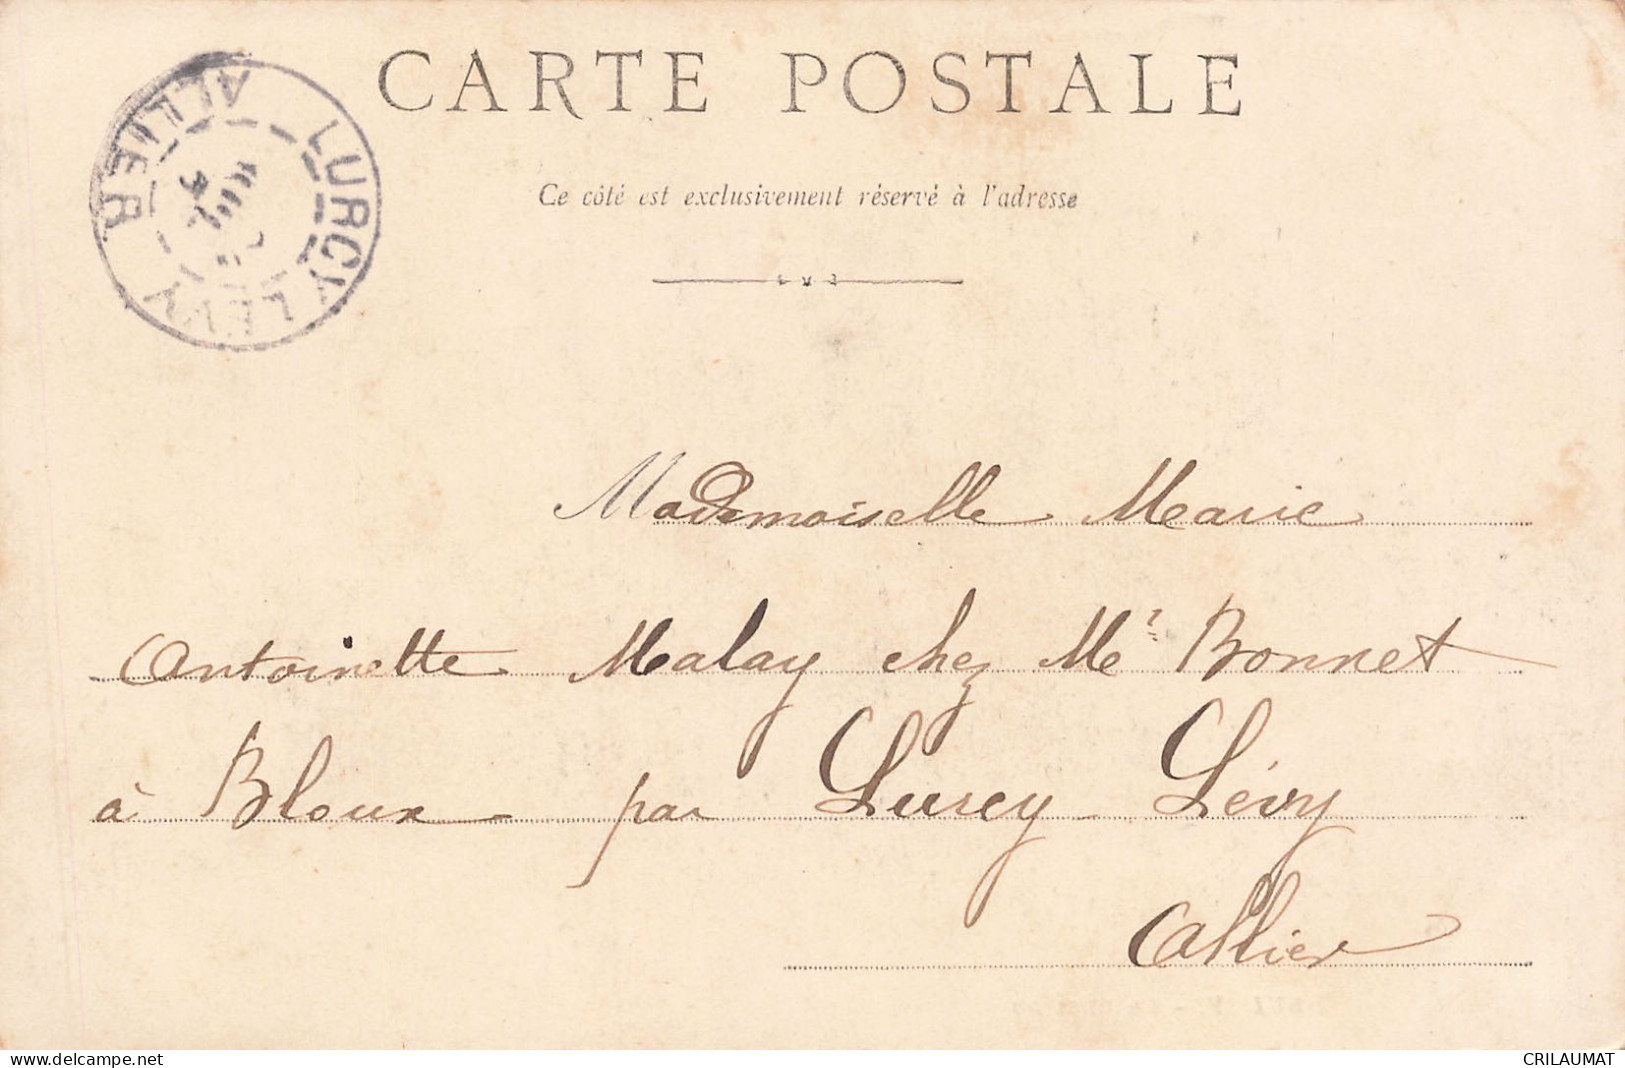 CARTE POSTALE
Ce côté est exclusivement réservé à l'adresse
LURCY LEVY
ALLIER
Mademoiselle Marie
Antoinette Malay chez Mr Bonnet
à Bloux par Lurcy Lévy
Allier
www.delcampe.net
CRILAUMAT